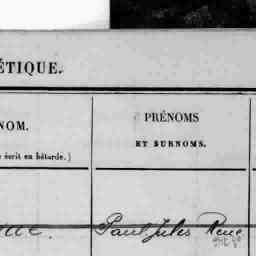 ÉTIQUE.
NOM.
PRÉNOMS
ET SURNOMS.
écrit en bâtarde.)
Paul Jules René